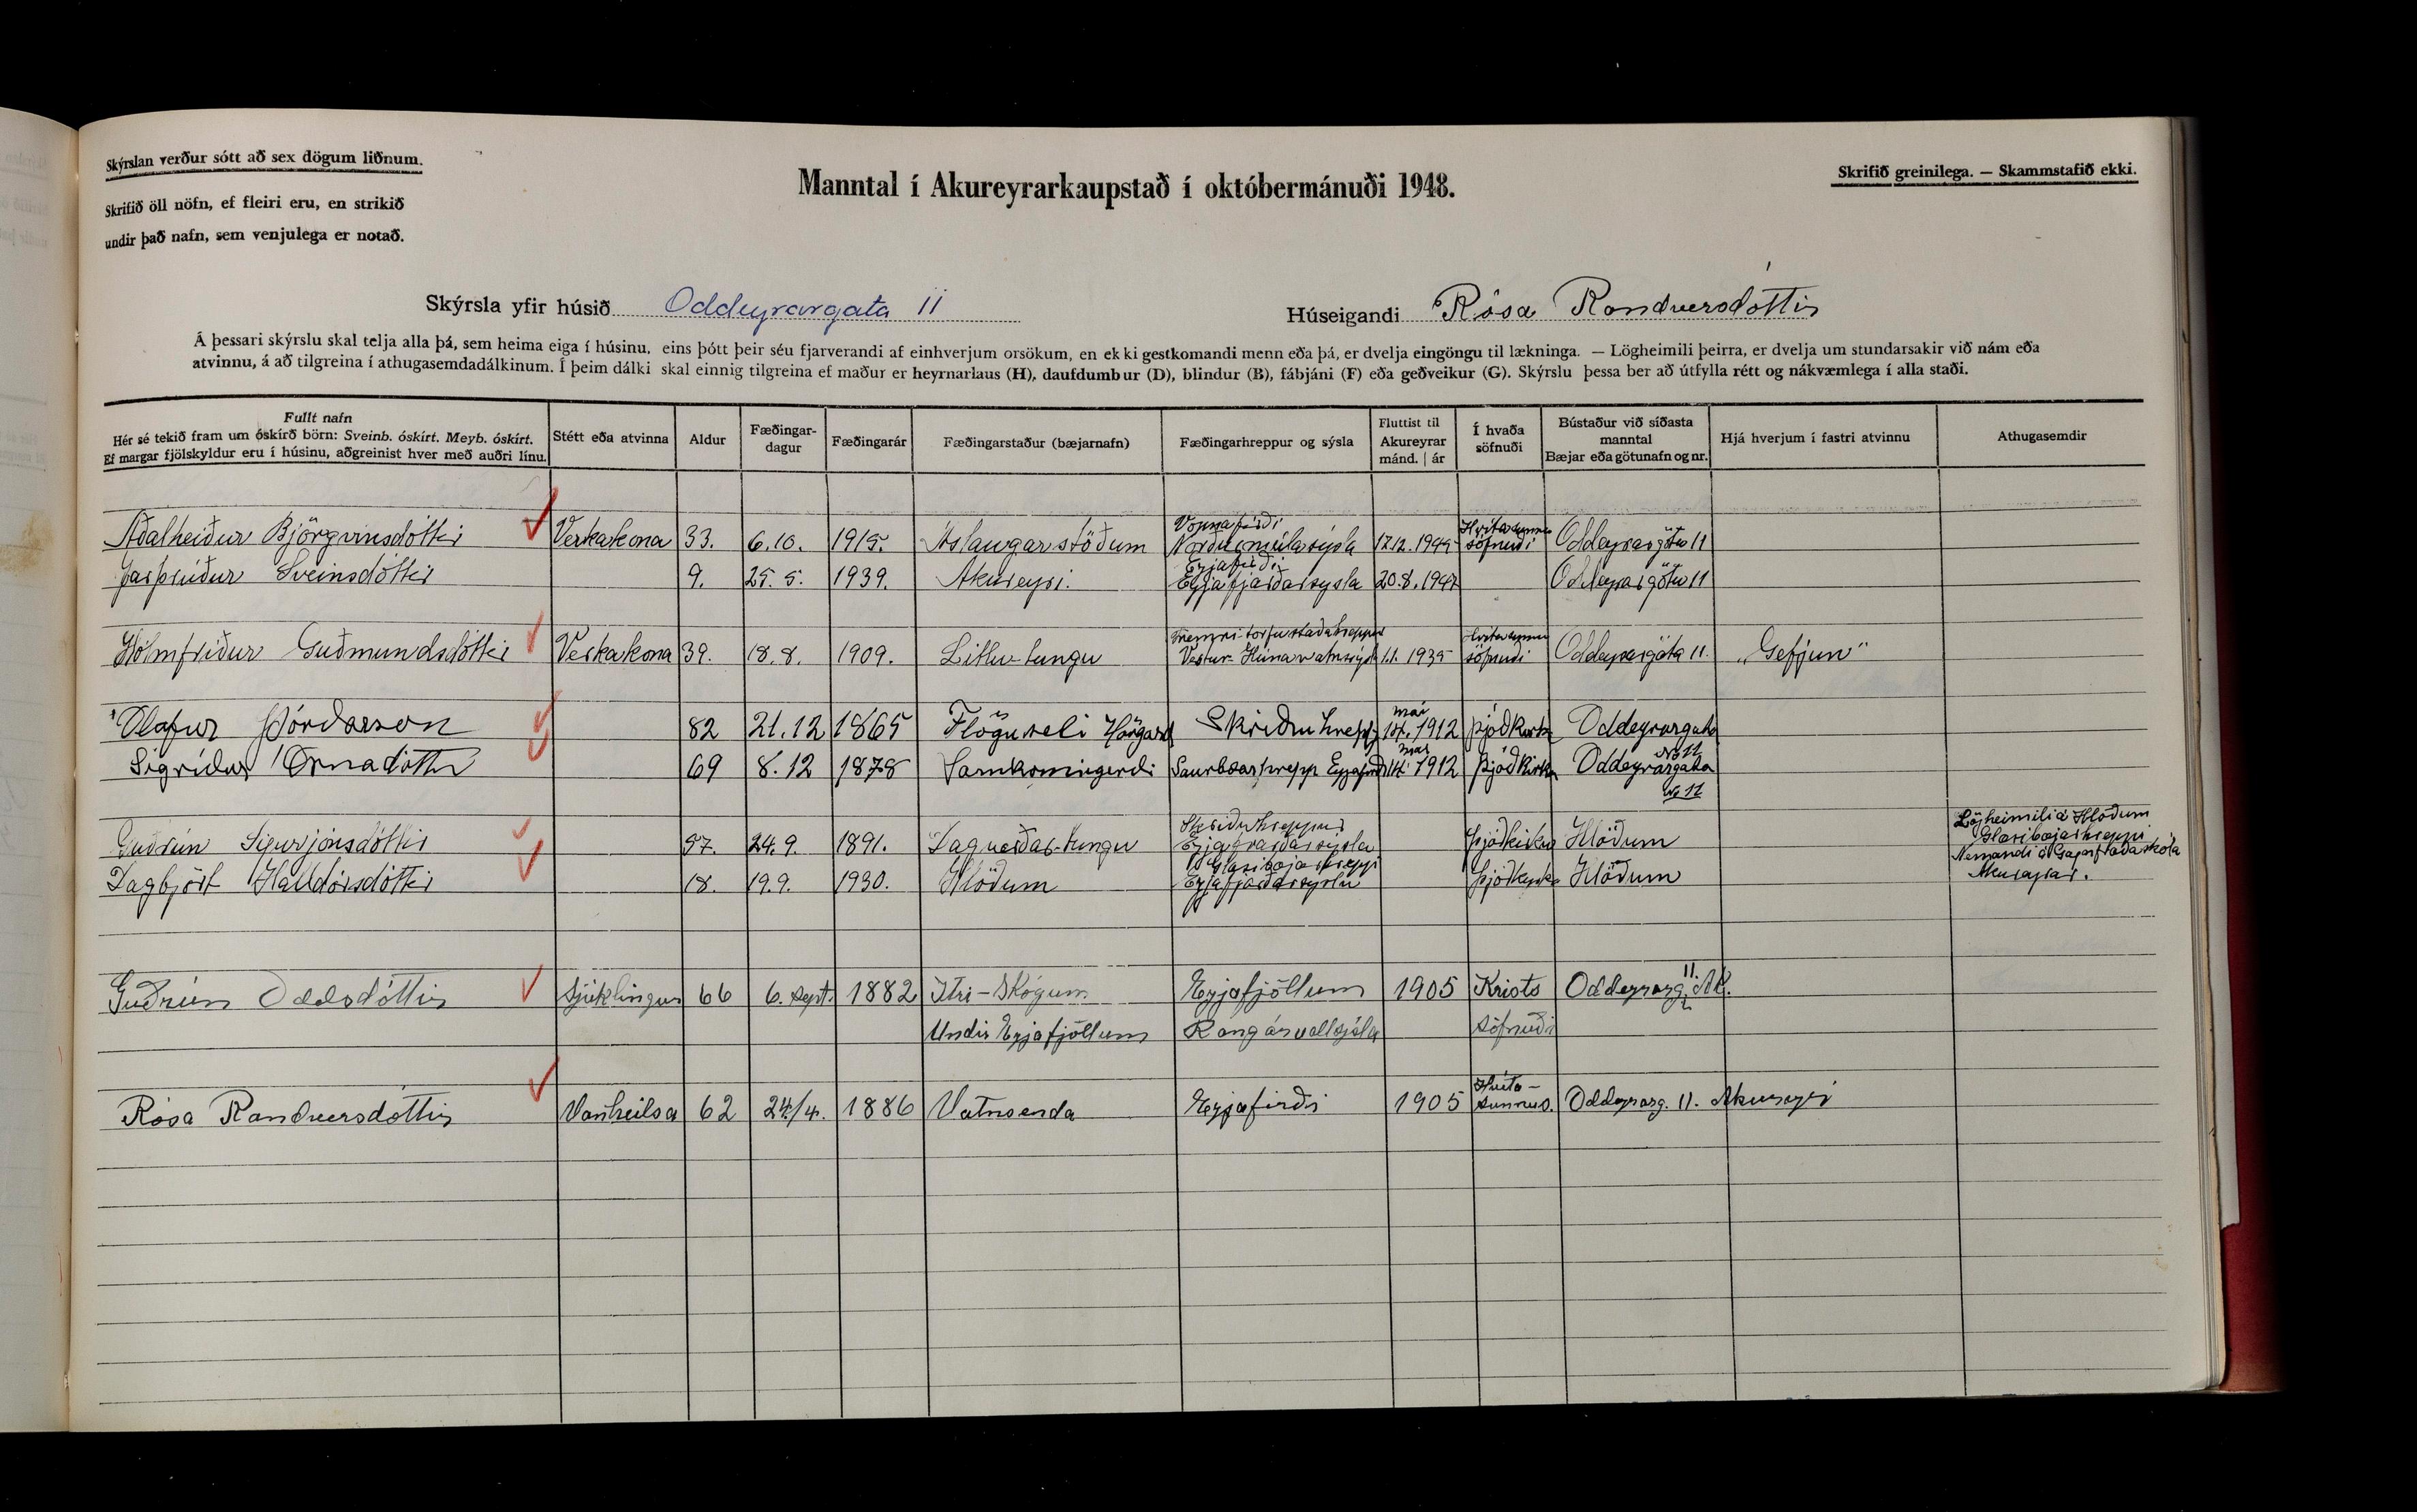 Skýrslan verður sótt að sex dögum liðnum.
Skrifið öll nöfn, ef fleiri eru, en strikið
undir það nafn, sem venjulega er notað.
Manntal í Akureyrarkaupstað í októbermánuði 1948.
Skrifið greinilega. — Skammstafið ekki.
Skýrsla yfir húsið Oddeyrargata 11
Húseigandi Rósa Randversdóttir
Á þessari skýrslu skal telja alla þá, sem heima eiga í húsinu, eins þótt þeir séu fjarverandi af einhverjum orsökum, en ekki gestkomandi menn eða þá, er dvelja eingöngu til lækninga. — Lögheimili þeirra, er dvelja um stundarsakir við nám eða
atvinnu, á að tilgreina í athugasemdadálkinum. Í þeim dálki skal einnig tilgreina ef maður er heyrnarlaus (H), daufdumbur (D), blindur (B), fábjáni (F) eða geðveikur (G). Skýrslu þessa ber að útfylla rétt og nákvæmlega í alla staði.
Fullt nafn
Hér sé tekið fram um óskírð börn: Sveinb. óskírt. Meyb. óskírt.
Ef margar fjölskyldur eru í húsinu, aðgreinist hver með auðri línu.
Stétt eða atvinna
Aldur
Fæðingar-
dagur
Fæðingarár
Fæðingarstaður (bæjarnafn)
Fæðingarhreppur og sýsla
Fluttist til
Akureyrar
mánd. | ár
Í hvaða
söfnuði
Bústaður við síðasta
manntal
Bæjar eða götunafn og nr.
Hjá hverjum í fastri atvinnu
Athugasemdir
Vopnafirði Hvítasunnu
Aðalheiður Björgvinsdóttir Verkakona 33. 6.10. 1915. Áslaugarstöðum Norðurmúlasýsla 17.12.1944 söfnuði Oddeyrargötu 11
Eyjafirði
Sveinsdóttir 9. 25.5. 1939. Akureyri. Eyjafjarðarsýsla 20.8.1947 Oddeyrargötu 11
Fremri-torfustaðahreppur Hvítasunnu
Hólmfríður Guðmundsdóttir Verkakona 39. 18.8. 1909. Litlu-tungu Vestur-Húnavatnssýsla 1.1. 1935 söfnuði Oddeyrargöta 11. "Gefjun"
maí
Ólafur Þórðarson 82 21.12 1865 Flöguseli Hörgard Skriðuhrepp 14. 1912 þjóðkirkj Oddeyrargata
No 11
maí
Sigríður Árnadóttir 69 8.12 1878 Samkomugerði Saurbæarhrepp Eyjafirði 14. 1912 þjóðkirkj Oddeyrargata
No 11
Skriðuhreppur
Guðrún Sigurjónsdóttir 57. 24.9. 1891. Eyjafjarðarsýsla þjóðkirkju Hlöðum
Lögheimili á Hlöðum
Glæsibæjarhreppi
Glæsibæjarhreppi
Dagbjört Halldórsdóttir 18. 19.9. 1930. Hlöðum Eyjafjarðarsýslu þjóðkirkju Hlöðum
Nemandi á Gagnfræðaskóla
Akureyrar.
Guðrún Oddsdóttir Sjúklingur 66 6. sept. 1882 Itri-Skógum Eyjafjöllum 1905 Krists Oddeyrarg. 11. Ak.
Undir Eyjafjöllum Rangárvallsýsla söfnuði
Hvíta-
Rósa Randversdóttir Vanheilsa 62 24/4. 1886 Vatnsenda Eyjafirði 1905 sunnus. Oddeyrarg. 11. Akureyri